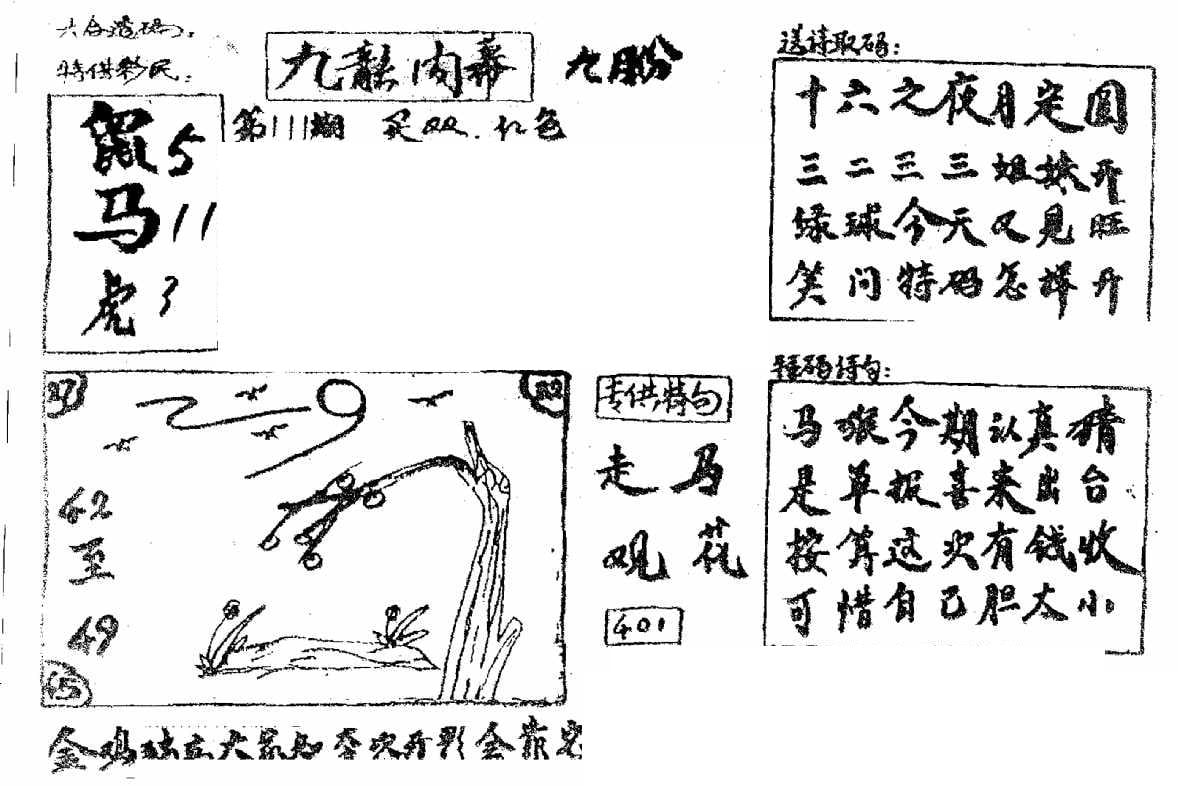 六合透码:
特供彩民:
九龍内幕
九月份
第111期 买双.红色
鼠5
马11
虎3
送诗取码:
十六之夜月定圆
三二三三姐妹开
绿球今天又見旺
笑问特码怎样开
27
22
42
至
49
45
专供特句
走马
观花
401
诗句:
马 今期认真猜
是单报喜来出台
按算这次有钱收
可惜自己胆太小
金鸡独立大家知 次开彩会靠